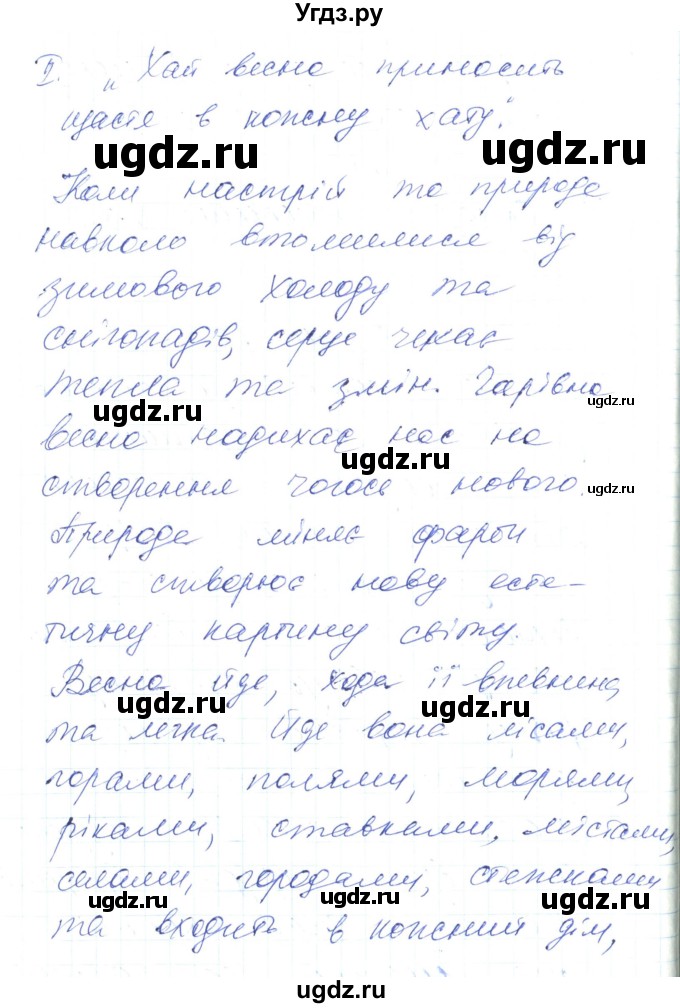 Угдз.ру
II. „Хай весна приносить
щастя в кожну хату".
ugdz.ru ugdz.ru
Коли настрій та природа
навколо втомилися від
зимового холоду та
снігопадів, серце чекає
тепла та змін. Чарівна
ugdz.ru ugdz.ru
весна надихає нас на
ugdz.ru
створення чогось нового.
ugdz.ru
Природа міняє фарби
та створює нову есте-
тичну картину світу.
Весна йде, хода її впевнена
ugdz.ru ugdz.ru
та легка. Йде вона лісами,
горами, полями, морями,
ріками, ставками, містами,
селами, городами, стежками
ugdz.ru ugdz.ru ugdz.ru
та входить в кожний дім,
ugdz.ru